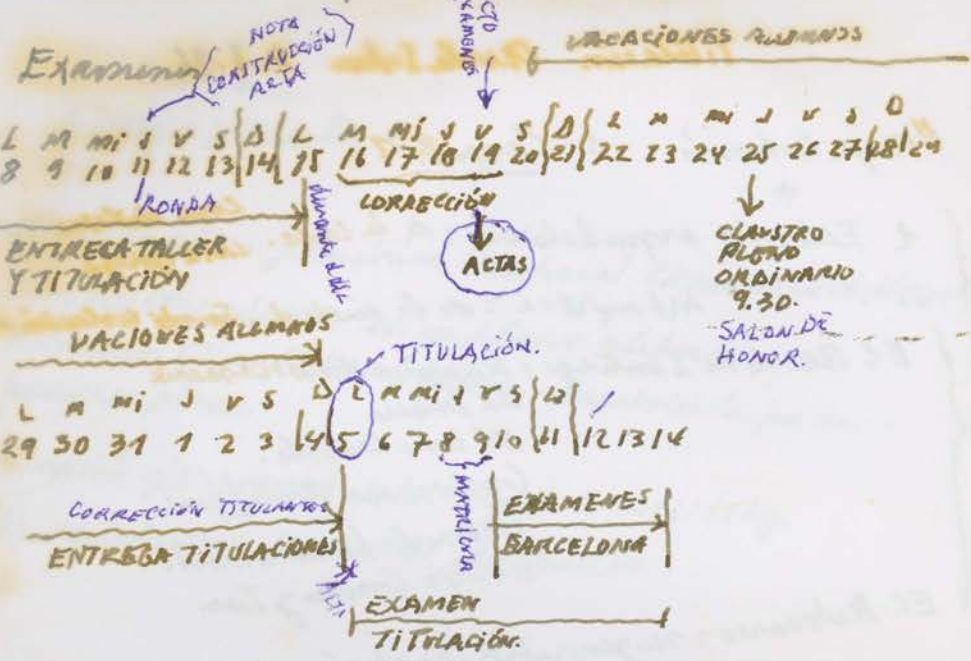 NOTA
CONSTRUCCIÓN
ACTA
ACTO
EXAMENES
VACACIONES ALUMNOS
Examenes
L M Mi J V S D L M Mi J V S D L M Mi J V S D
8 9 10 11 12 13 14 15 16 17 18 19 20 21 22 23 24 25 26 27 28 29
RONDA
CORRECCIÓN
ENTREGA TALLER
Y TITULACIÓN
ACTAS
CLAUSTRO
PLENO
ORDINARIO
9.30.
SALON DE
HONOR.
VACIONES ALUMNOS
TITULACIÓN.
L M Mi J V S D L M Mi J V S D
29 30 31 1 2 3 4 5 6 7 8 9 10 11 12 13 14
CORRECCIÓN TITULANTES
ENTREGA TITULACIONES
MATRÍCULA
EXAMENES
BARCELONA
EXAMEN
TITULACIÓN.